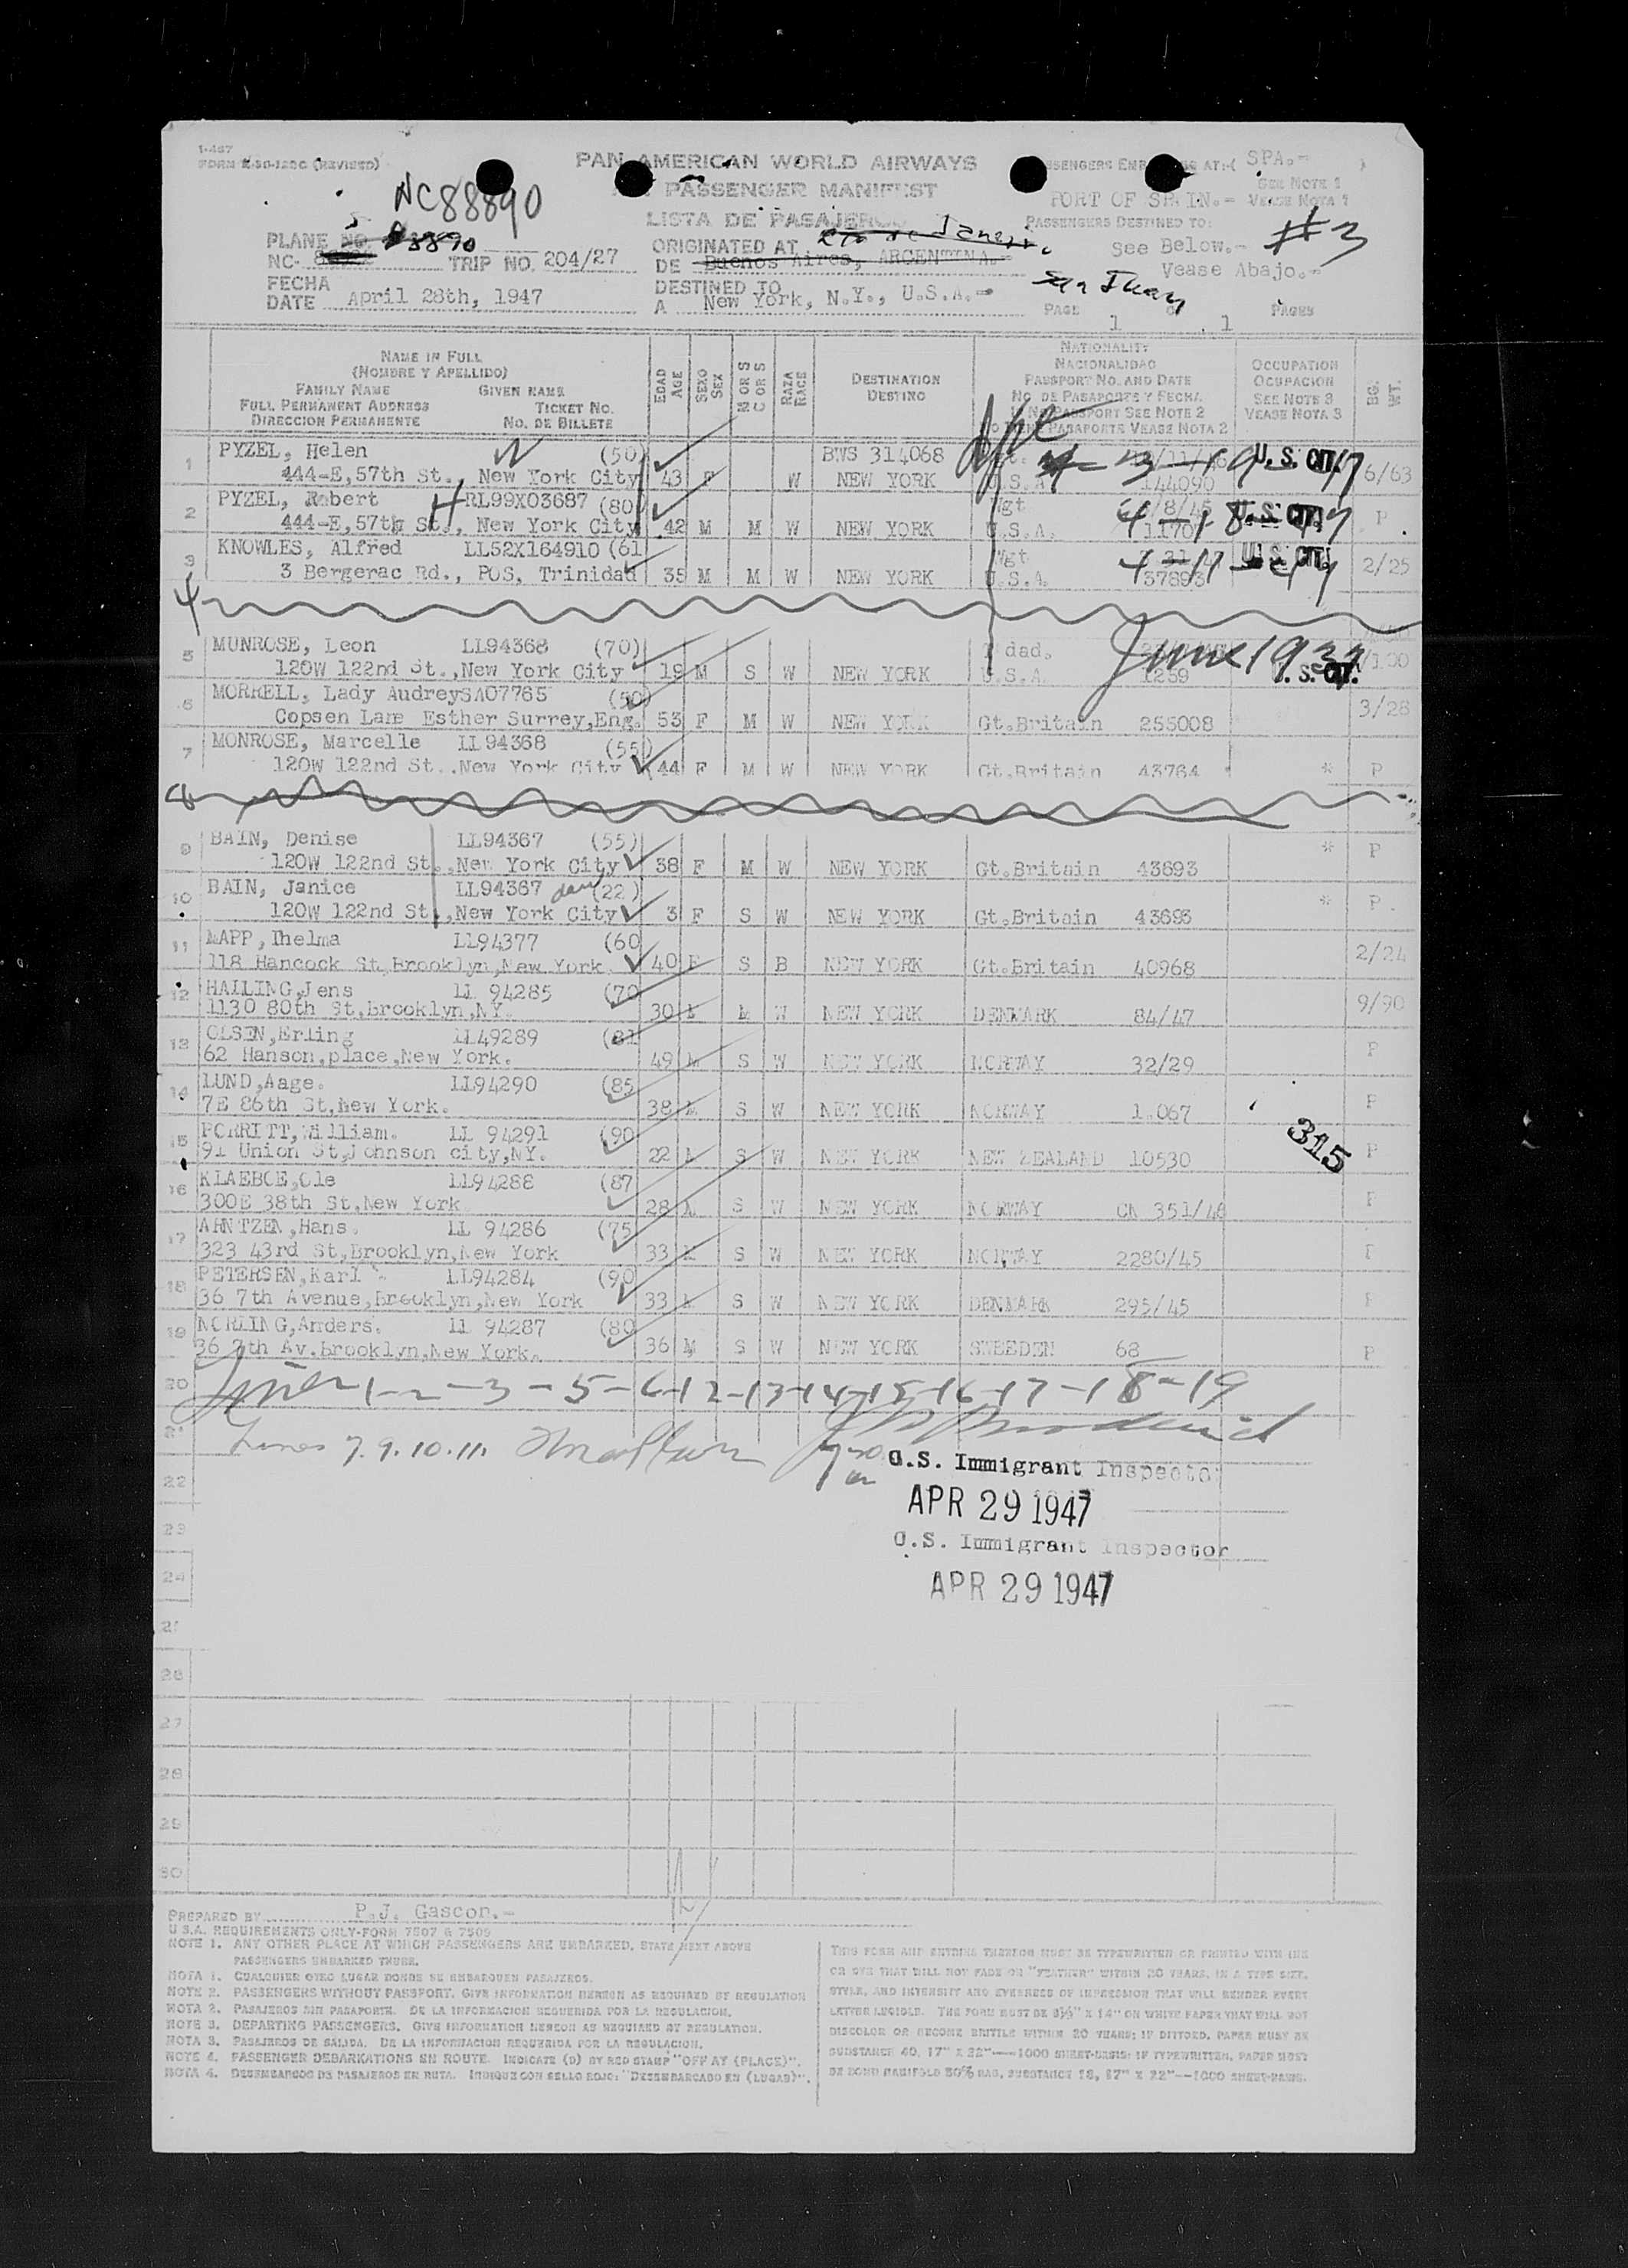 1-467
FORM (REVISED)
PAN AMERICAN WORLD AIRWAYS
PASSENGER MANIFEST
LISTA DE PASAJEROS
SPA.-
SEE NOTE 1
PORT OF SPAIN.- VEASE NOTA 1
PASSENGERS DESTINED TO:
See Below.-
Vease Abajo.-
#3
NC88890
PLANE NO. 88890
NC-
TRIP NO. 204/27
FECHA
DATE April 28th, 1947
ORIGINATED AT Rio de Janeiro
DE Buenos Aires, ARGENTINA.-
DESTINED TO San Juan
A New York, N.Y., U.S.A.-
PAGE 1 OF 1 PAGES
NAME IN FULL
(NOMBRE Y APELLIDO)
FAMILY NAME GIVEN NAME
FULL PERMANENT ADDRESS TICKET NO.
DIRECCION PERMANENTE NO. DE BILLETE
EDAD AGE
SEXO SEX
M OR S C OR S
RAZA RACE
DESTINATION
DESTINO
NATIONALITY
NACIONALIDAD
PASSPORT NO. AND DATE
NO. DE PASAPORTE Y FECHA
NO PASSPORT SEE NOTE 2
PASAPORTE VEASE NOTA 2
OCCUPATION
OCUPACION
SEE NOTE 3
VEASE NOTA 3
BG. WT.
1 PYZEL, Helen (50) BWS 314068
444-E,57th St., New York City 43 F W NEW YORK U.S.A. 144090 U.S. CIT. 6/63
2 PYZEL, Robert RL99X03687 (80)
444-E,57th St., New York City 42 M M W NEW YORK U.S.A. U.S. CIT. P
3 KNOWLES, Alfred LL52X164910 (61
3 Bergerac Rd., POS, Trinidad 35 M M W NEW YORK U.S.A. 37893 U.S. CIT. 2/25
4
5 MUNROSE, Leon LL94368 (70) June 1937
120W 122nd St.,New York City 19 M S W NEW YORK U.S.A. 1259 U.S. CIT.
6 MORRELL, Lady Audrey SA07765 (50)
Copsen Lane Esther Surrey,Eng. 53 F M W NEW YORK Gt.Britain 255008 3/28
7 MONROSE, Marcelle LL94368 (55)
120W 122nd St.,New York City 44 F M W NEW YORK Gt.Britain 43764 * P
8
9 BAIN, Denise LL94367 (55)
120W 122nd St.,New York City 38 F M W NEW YORK Gt.Britain 43693 * P
10 BAIN, Janice LL94367 (22)
120W 122nd St.,New York City 3 F S W NEW YORK Gt.Britain 43693 * P
11 MAPP,Thelma LL94377 (60
118 Hancock St,Brooklyn,New York. 40 F S B NEW YORK Gt.Britain 40968 2/24
12 HALLING,Jens LL 94285 (70
1130 80th St,Brooklyn,NY. 30 M M W NEW YORK DENMARK 84/47 9/90
13 OLSEN,Erling LL49289 (81
62 Hanson,place,New York. 49 M S W NEW YORK NORWAY 32/29 P
14 LUND,Aage. LL94290 (85
7E 86th St,New York. 38 M S W NEW YORK NORWAY 1.067 P
15 PORRITT,William. LL 94291 (90
91 Union St,Johnson city,NY. 22 M S W NEW YORK NEW ZEALAND 10530 315 P
16 KLAEBOE,Ole LL94288 (87
300E 38th St,New York 28 M S W NEW YORK NORWAY CN 351/46 P
17 ARNTZEN,Hans. LL 94286 (75
323 43rd St,Brooklyn,New York 33 M S W NEW YORK NORWAY 2280/45 P
18 PETERSEN,Karl LL94284 (90
36 7th Avenue,Brooklyn,New York 33 M S W NEW YORK DENMARK 295/45 P
19 NORLING,Anders. LL 94287 (80
36 7th Av.Brooklyn,New York. 36 M S W NEW YORK SWEDEN 68 P
20 Lines 1-2-3-5-6-12-13-14-15-16-17-18-19
21 Lines 7.9.10.11.
U.S. Immigrant Inspector
22
APR 29 1947
23
U.S. Immigrant Inspector
24
APR 29 1947
25
26
27
28
29
30
PREPARED BY P.J. Gascon.-
U.S.A. REQUIREMENTS ONLY-FORM 7507 & 7509
NOTE 1. ANY OTHER PLACE AT WHICH PASSENGERS ARE EMBARKED, STATE NEXT ABOVE
PASSENGERS EMBARKED THERE.
NOTA 1. CUALQUIER OTRO LUGAR DONDE SE EMBARQUEN PASAJEROS.
NOTE 2. PASSENGERS WITHOUT PASSPORT. GIVE INFORMATION HEREON AS REQUIRED BY REGULATION
NOTA 2. PASAJEROS SIN PASAPORTE. DE LA INFORMACION REQUERIDA POR LA REGULACION.
NOTE 3. DEPARTING PASSENGERS. GIVE INFORMATION HEREON AS REQUIRED BY REGULATION.
NOTA 3. PASAJEROS DE SALIDA. DE LA INFORMACION REQUERIDA POR LA REGULACION.
NOTE 4. PASSENGER DEBARKATIONS EN ROUTE. INDICATE (D) BY RED STAMP "OFF AT (PLACE)".
NOTA 4. DESEMBARCOS DE PASAJEROS EN RUTA. INDIQUE CON SELLO ROJO: "DESEMBARCADO EN (LUGAR)".
THIS FORM AND ENTRIES THEREON MUST BE TYPEWRITTEN OR PRINTED WITH INK
OR DYE THAT WILL NOT FADE OR "FEATHER" WITHIN 20 YEARS, IN A TYPE SIZE,
STYLE, AND INTENSITY AND EVENNESS OF IMPRESSION THAT WILL RENDER EVERY
LETTER LEGIBLE. THE FORM MUST BE 8½" X 14" ON WHITE PAPER THAT WILL NOT
DISCOLOR OR BECOME BRITTLE WITHIN 20 YEARS; IF DITTOED, PAPER MUST BE
SUBSTANCE 40, 17" X 22"—1000 SHEET-BASIS; IF TYPEWRITTEN, PAPER MUST
BE BOND MANIFOLD 50% RAG, SUBSTANCE 18, 17" X 22"—1000 SHEET-BASIS.